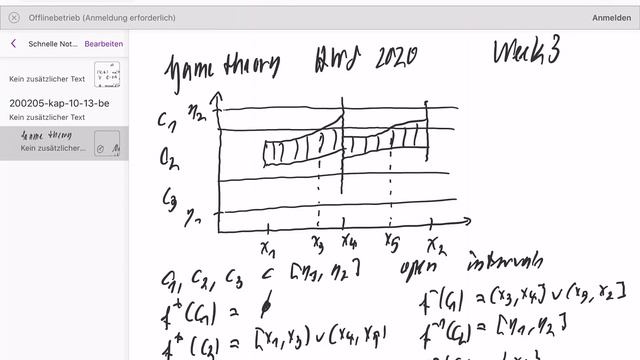 Offlinebetrieb (Anmeldung erforderlich)
Anmelden
Schnelle Not...
Bearbeiten
Kein zusätzlicher Text
200205-kap-10-13-be
Kein zusätzlicher Text
Game theory
Kein zusätzlicher...
Game theory HWS 2020 Week 3
η₂
C₁
C₂
C₃
η₁
x₁ x₃ x₄ x₅ x₂
C₁, C₂, C₃ ⊂ [η₁, η₂] open intervals
f⁺(C₁) = ∅
f⁻(C₁) = (x₃, x₄] ∪ (x₅, x₂]
f⁺(C₂) = [x₁, x₃) ∪ (x₄, x₅)
f⁻(C₂) = [η₁, η₂]